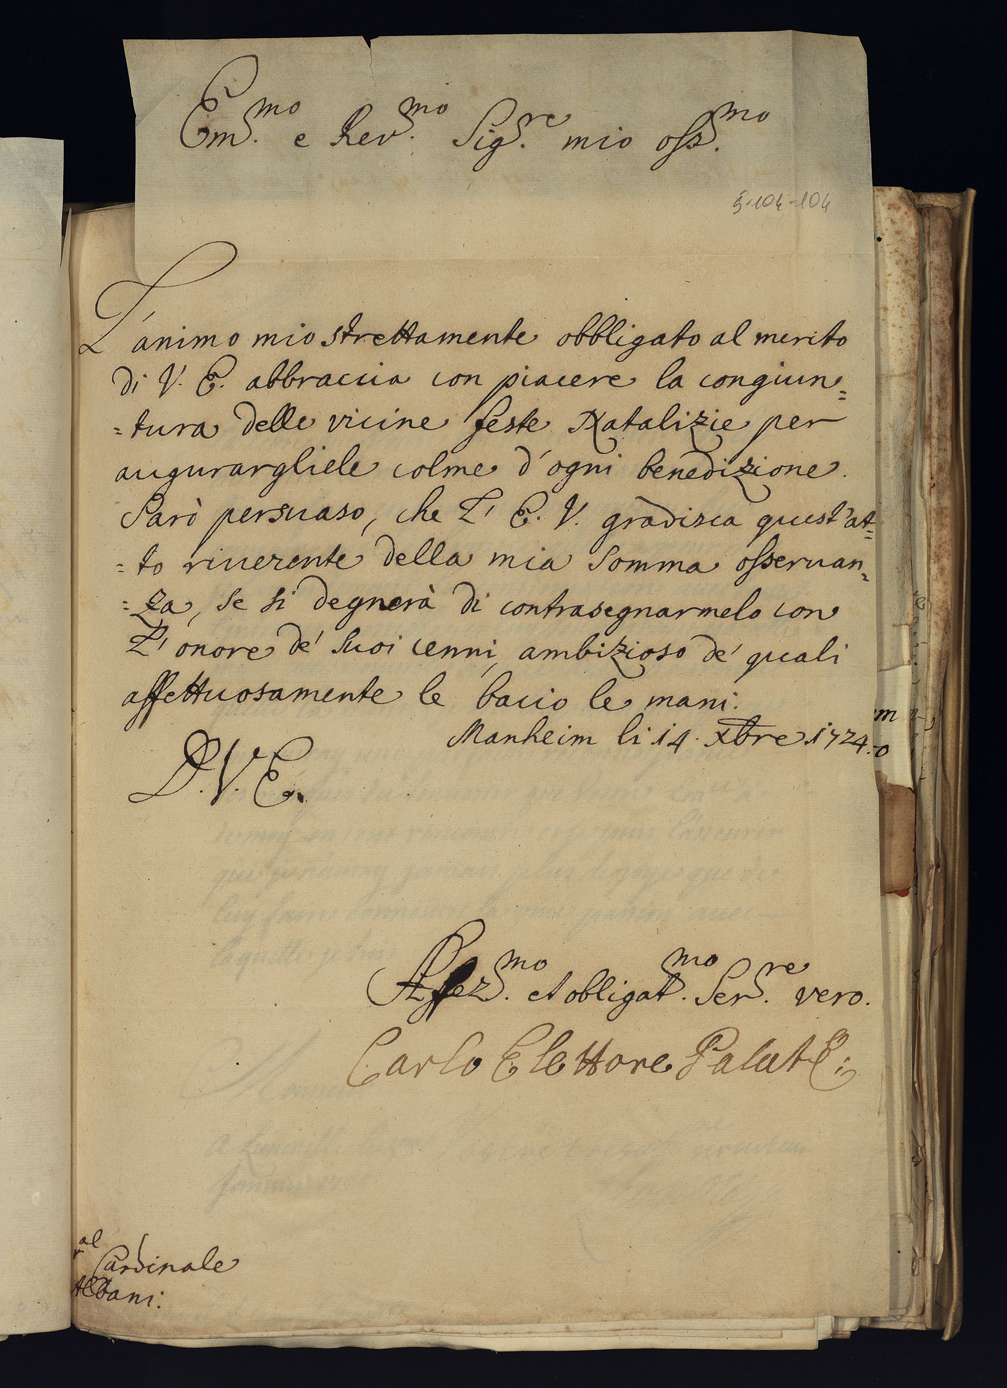 Em.mo e Rev.mo Sig.re mio oss.mo
5-104-104
L'animo mio strettamente obbligato al merito
di V. E. abbraccia con piacere la congiun=
=tura delle vicine feste Natalizie per
augurargliele colme d'ogni benedizione.
Sarò persuaso, che L' E. V. gradisca quest'at=
=to riverente della mia somma osservan=
=za, se si degnerà di contrasegnarmelo con
L'onore de' suoi cenni, ambizioso de' quali
affettuosamente le bacio le mani.
Manheim li 14. Xbre 1724.
D. V. E.
Affez.mo et obligat.mo Ser.re vero.
Carlo Elettore Palat:
Cardinale
Albani.